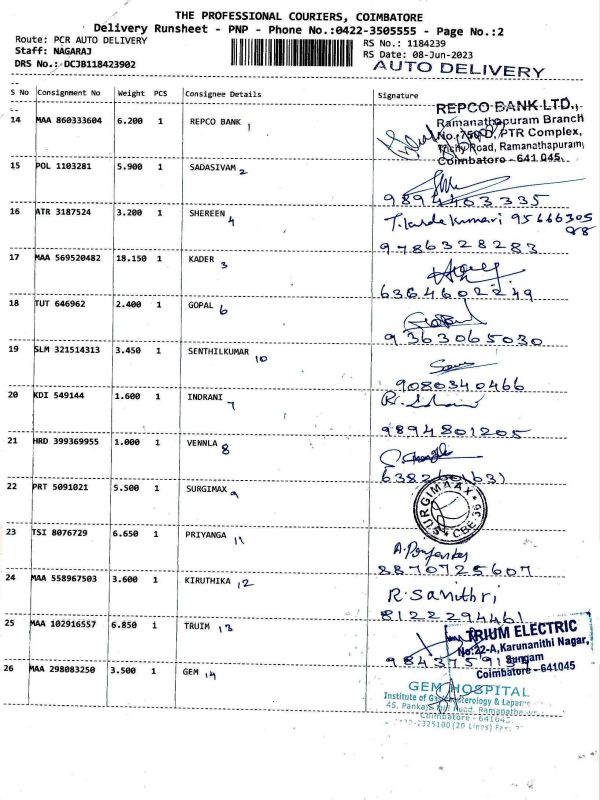 THE PROFESSIONAL COURIERS, COIMBATORE
Delivery Runsheet - PNP - Phone No.:0422-3505555 - Page No.:2
Route: PCR AUTO DELIVERY RS No.: 1184239
Staff: NAGARAJ RS Date: 08-Jun-2023
DRS No.: DCJB118423902 AUTO DELIVERY
--
S No Consignment No Weight PCS Consignee Details Signature
--
14 MAA 860333604 6.200 1 REPCO BANK 1
REPCO BANK LTD.,
Ramanathapuram Branch
PTR Complex,
Road, Ramanathapuram,
Coimbatore - 641 045.
15 POL 1103281 5.900 1 SADASIVAM 2
9894463335
16 ATR 3187524 3.200 1 SHEREEN 4
95666305
98
9786328283
17 MAA 569520482 18.150 1 KADER 3
6384602249
18 TUT 646962 2.400 1 GOPAL 6
9363065030
19 SLM 321514313 3.450 1 SENTHILKUMAR 10
9080340466
20 KDI 549144 1.600 1 INDRANI 7
9894801205
21 HRD 399369955 1.000 1 VENNLA 8
22 PRT 5091021 5.500 1 SURGIMAX 9
SURGIMAAX
CBE
23 TSI 8076729 6.650 1 PRIYANGA 11
8870725607
24 MAA 558967503 3.600 1 KIRUTHIKA 12
R. Sanithri
8122294461
25 MAA 102916557 6.850 1 TRUIM 13
TRIUM ELECTRIC
No:22-A, Karunanithi Nagar,
Sungam
Coimbatore - 641045
26 MAA 298083250 3.500 1 GEM 14
GEM HOSPITAL
Institute of
45,
Coimbatore - 641045.